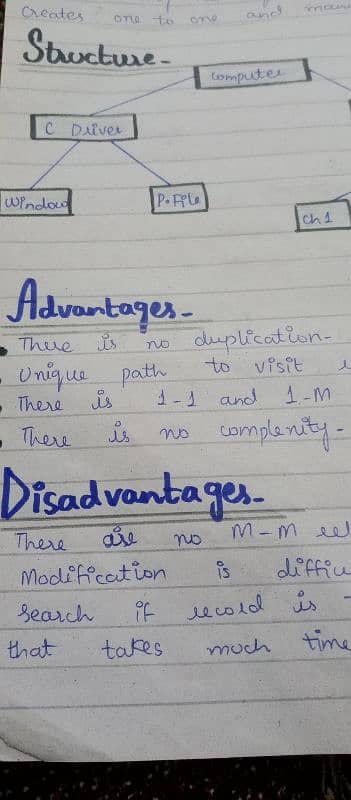 Creates one to one and man
Structure-
Computer
C Driver
Window
P.File
Ch 1
Advantages-
There is no duplication-
Unique path to visit
There is 1-1 and 1-M
There is no complenity-
Disadvantages-
There are no M-M rel
Modification is difficu
Search if record is
that takes much time